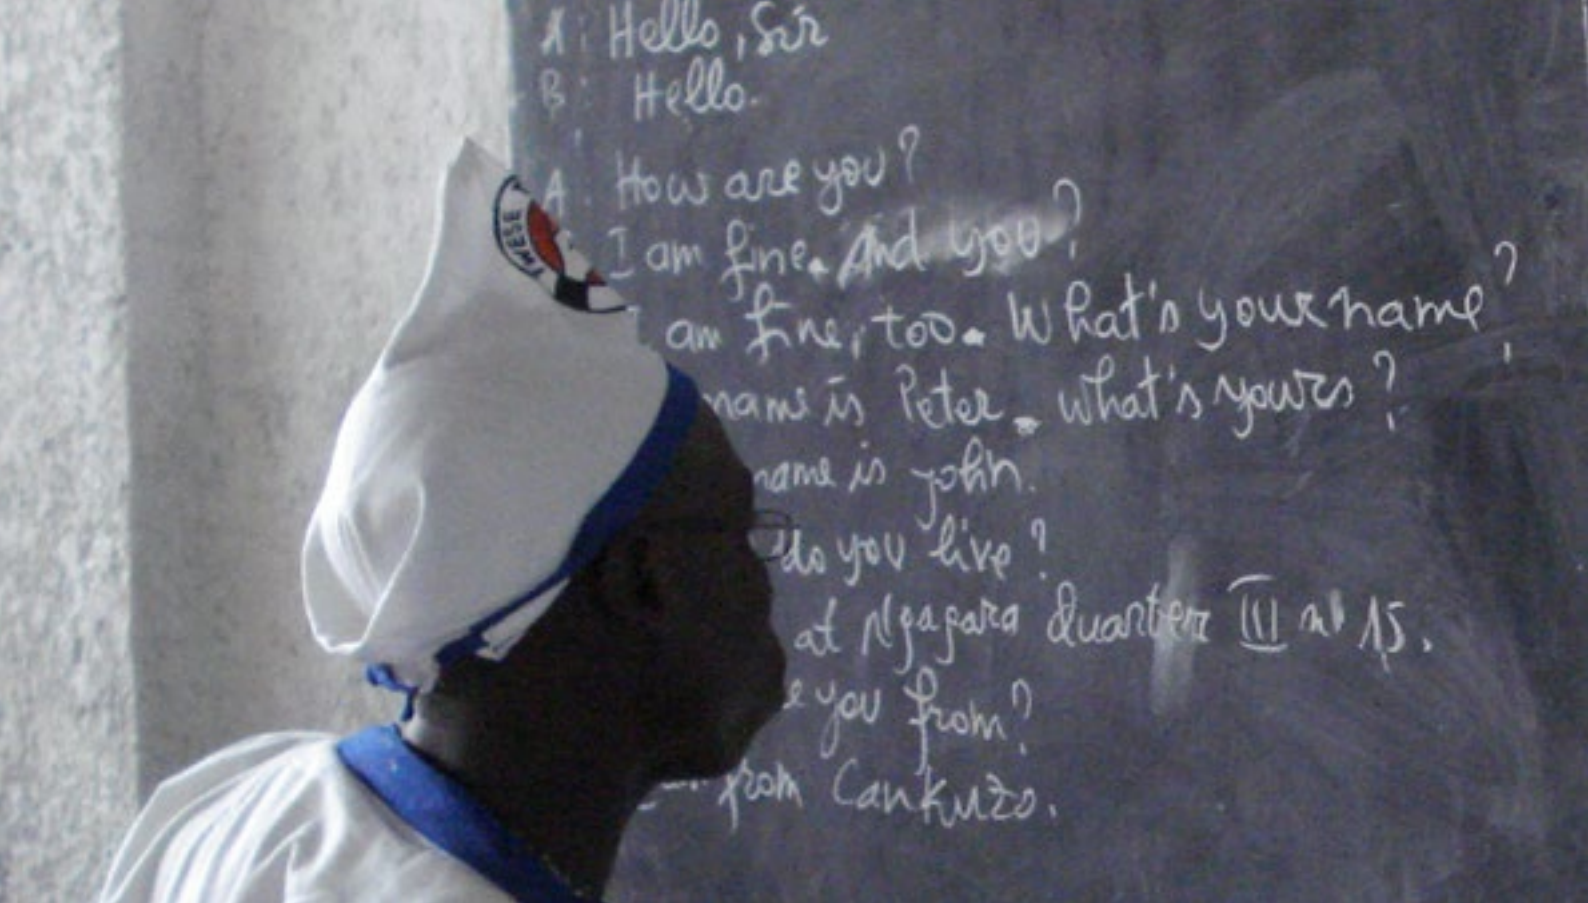 A: Hello, Sir
B: Hello.
A: How are you?
I am fine. And you?
I am fine, too. What's your name?
name is Peter. What's yours?
name is john.
do you live?
at Ngagara Quarter III n° 15.
you from?
from Cankuzo.
TWESE